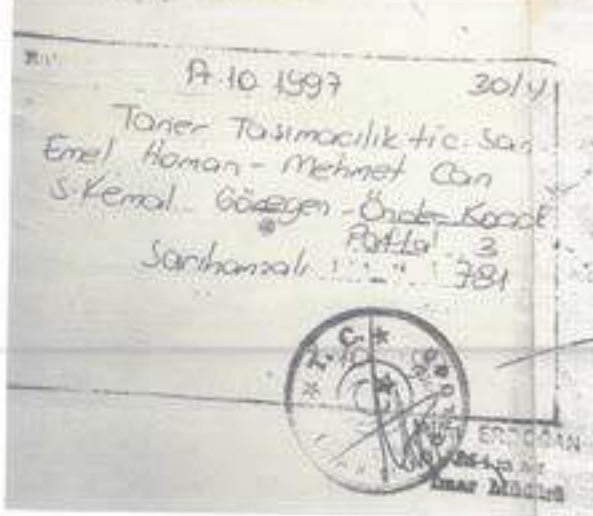 17.10.1997 30/4
Taner Taşımacılık tic. San
Emel Haman - Mehmet Can
S. Kemal Gözegen - Önder Konat
Pafta 3
Sarıhamzalı 781
T.C.
ERDOĞAN
İmar Müdürü